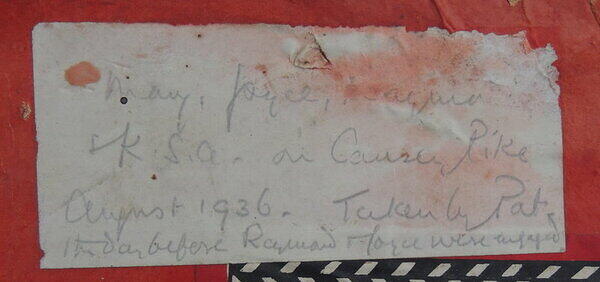 May, Joyce, Raymond
& K.S.A. on Causey Pike
August 1936. Taken by Pat,
the day before Raymond & Joyce were engaged